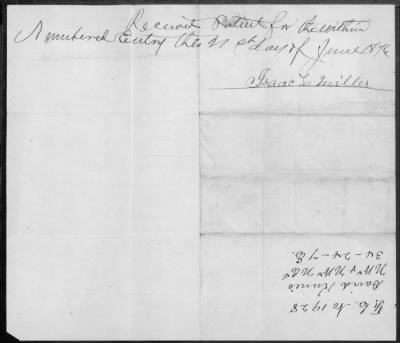 Received Patent for the within
Numbered Entry this 21st day of June 1876
Isaac L Miller
F.C. No 1928
David Ennis
NW¼ NW NE¼
34-24-7E.